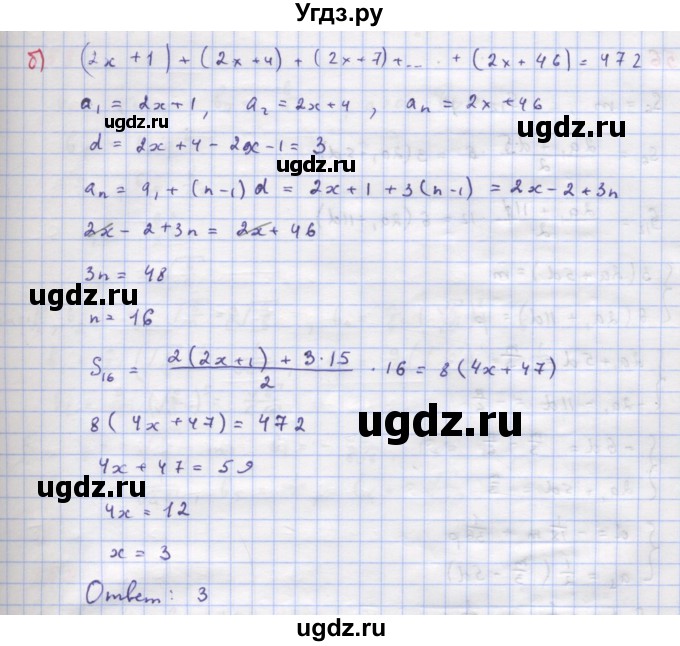 Угдз.ру
б) (2x + 1) + (2x + 4) + (2x + 7) + ... + (2x + 46) = 472
a₁ = 2x + 1, a₂ = 2x + 4, aₙ = 2x + 46
ugdz.ru
ugdz.ru
d = 2x + 4 - 2x - 1 = 3
ugdz.ru
aₙ = a₁ + (n-1) d = 2x + 1 + 3(n-1) = 2x - 2 + 3n
2x - 2 + 3n = 2x + 46
3n = 48
ugdz.ru
n = 16
S₁₆ = (2(2x+1) + 3·15)/2 · 16 = 8(4x + 47)
8(4x + 47) = 472
ugdz.ru
4x + 47 = 59
ugdz.ru
4x = 12
x = 3
Ответ: 3
ugdz.ru
ugdz.ru